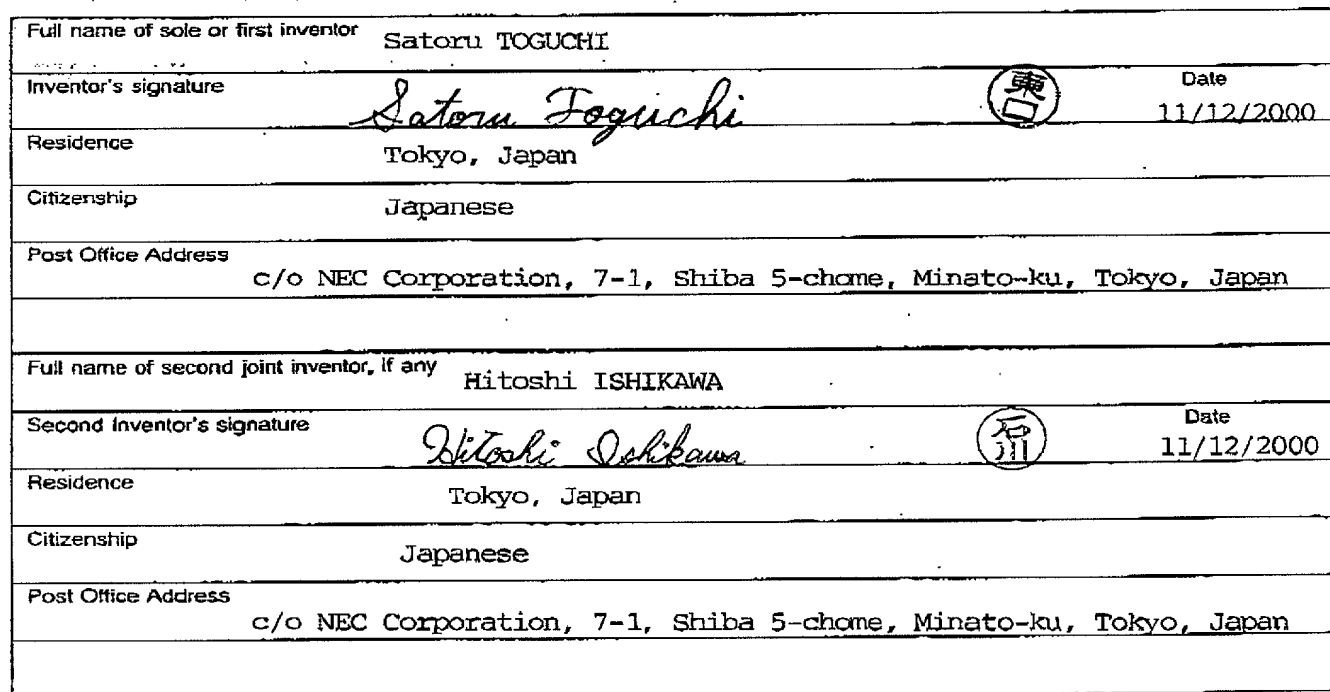 Full name of sole or first inventor Satoru TOGUCHI
Inventor's signature Satoru Toguchi 東口 Date
11/12/2000
Residence Tokyo, Japan
Citizenship Japanese
Post Office Address
c/o NEC Corporation, 7-1, Shiba 5-chome, Minato-ku, Tokyo, Japan
Full name of second joint inventor, if any Hitoshi ISHIKAWA
Second Inventor's signature Hitoshi Ishikawa 石川 Date
11/12/2000
Residence Tokyo, Japan
Citizenship Japanese
Post Office Address
c/o NEC Corporation, 7-1, Shiba 5-chome, Minato-ku, Tokyo, Japan